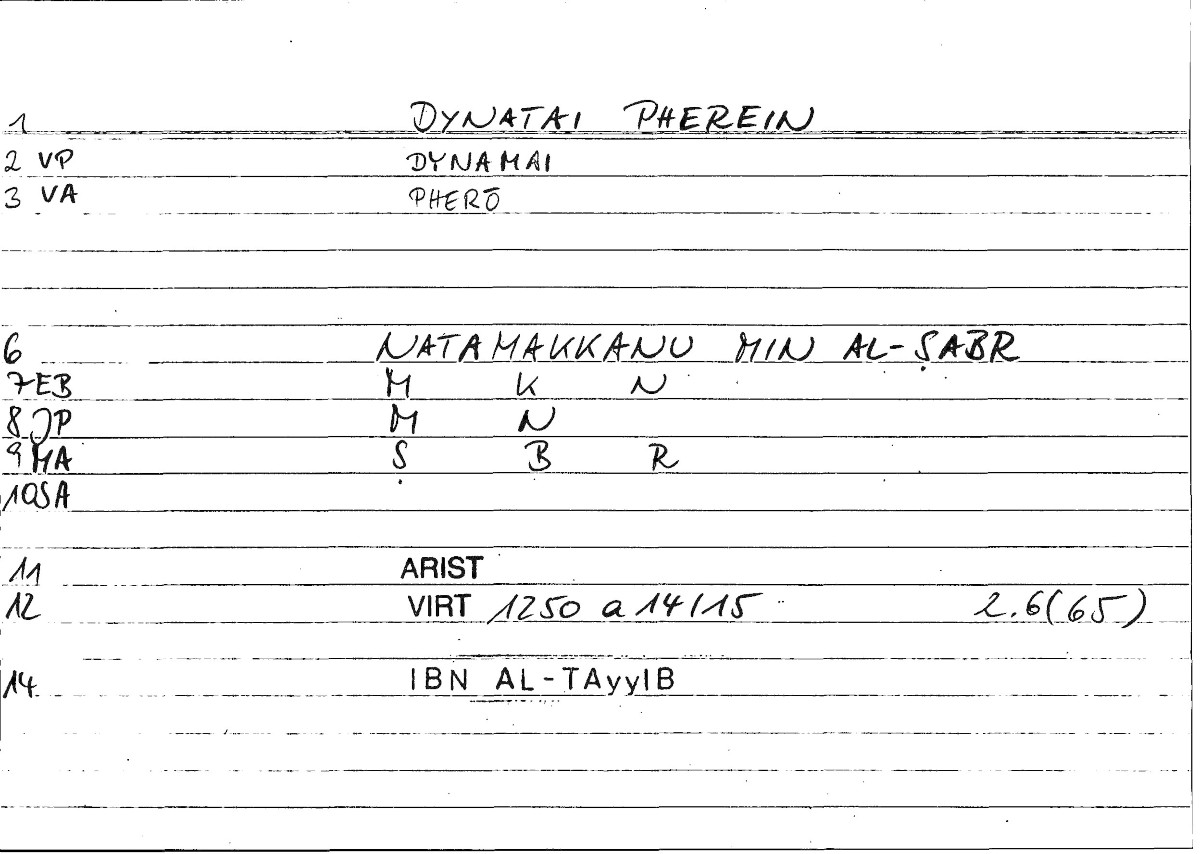 1 DYNATAI PHEREIN
2 VP DYNAMAI
3 VA PHERŌ
6 NATAMAKKANU MIN AL-ṢABR
7 EB M K N
8 JP M N
9 MA Ṣ B R
10 SA
11 ARIST
12 VIRT 1250 a 14/15 2.6(65)
14 IBN AL-TAyyIB